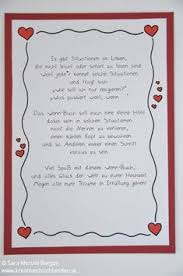 Es gibt Situationen im Leben,
die nicht leicht oder sofort zu lösen sind.
Wohl jede/r kennet solche Situationen
und fragt sich
"wie soll ich nur reagieren?"
"was passiert wohl, wenn
Das Wenn-Buch soll euch eine kleine Hilfe
dabei sein in solchen Situationen
nicht die Nerven zu verlieren,
einen kühlen Kopf zu bewahren
und so Anderen immer einen Schritt
voraus zu sein.
Viel Spaß mit diesem Wenn-Buch,
und alles Glück der Welt zu eurer Hochzeit.
Mögen alle eure Träume in Erfüllung gehen!
© Sara Menzel-Berger,